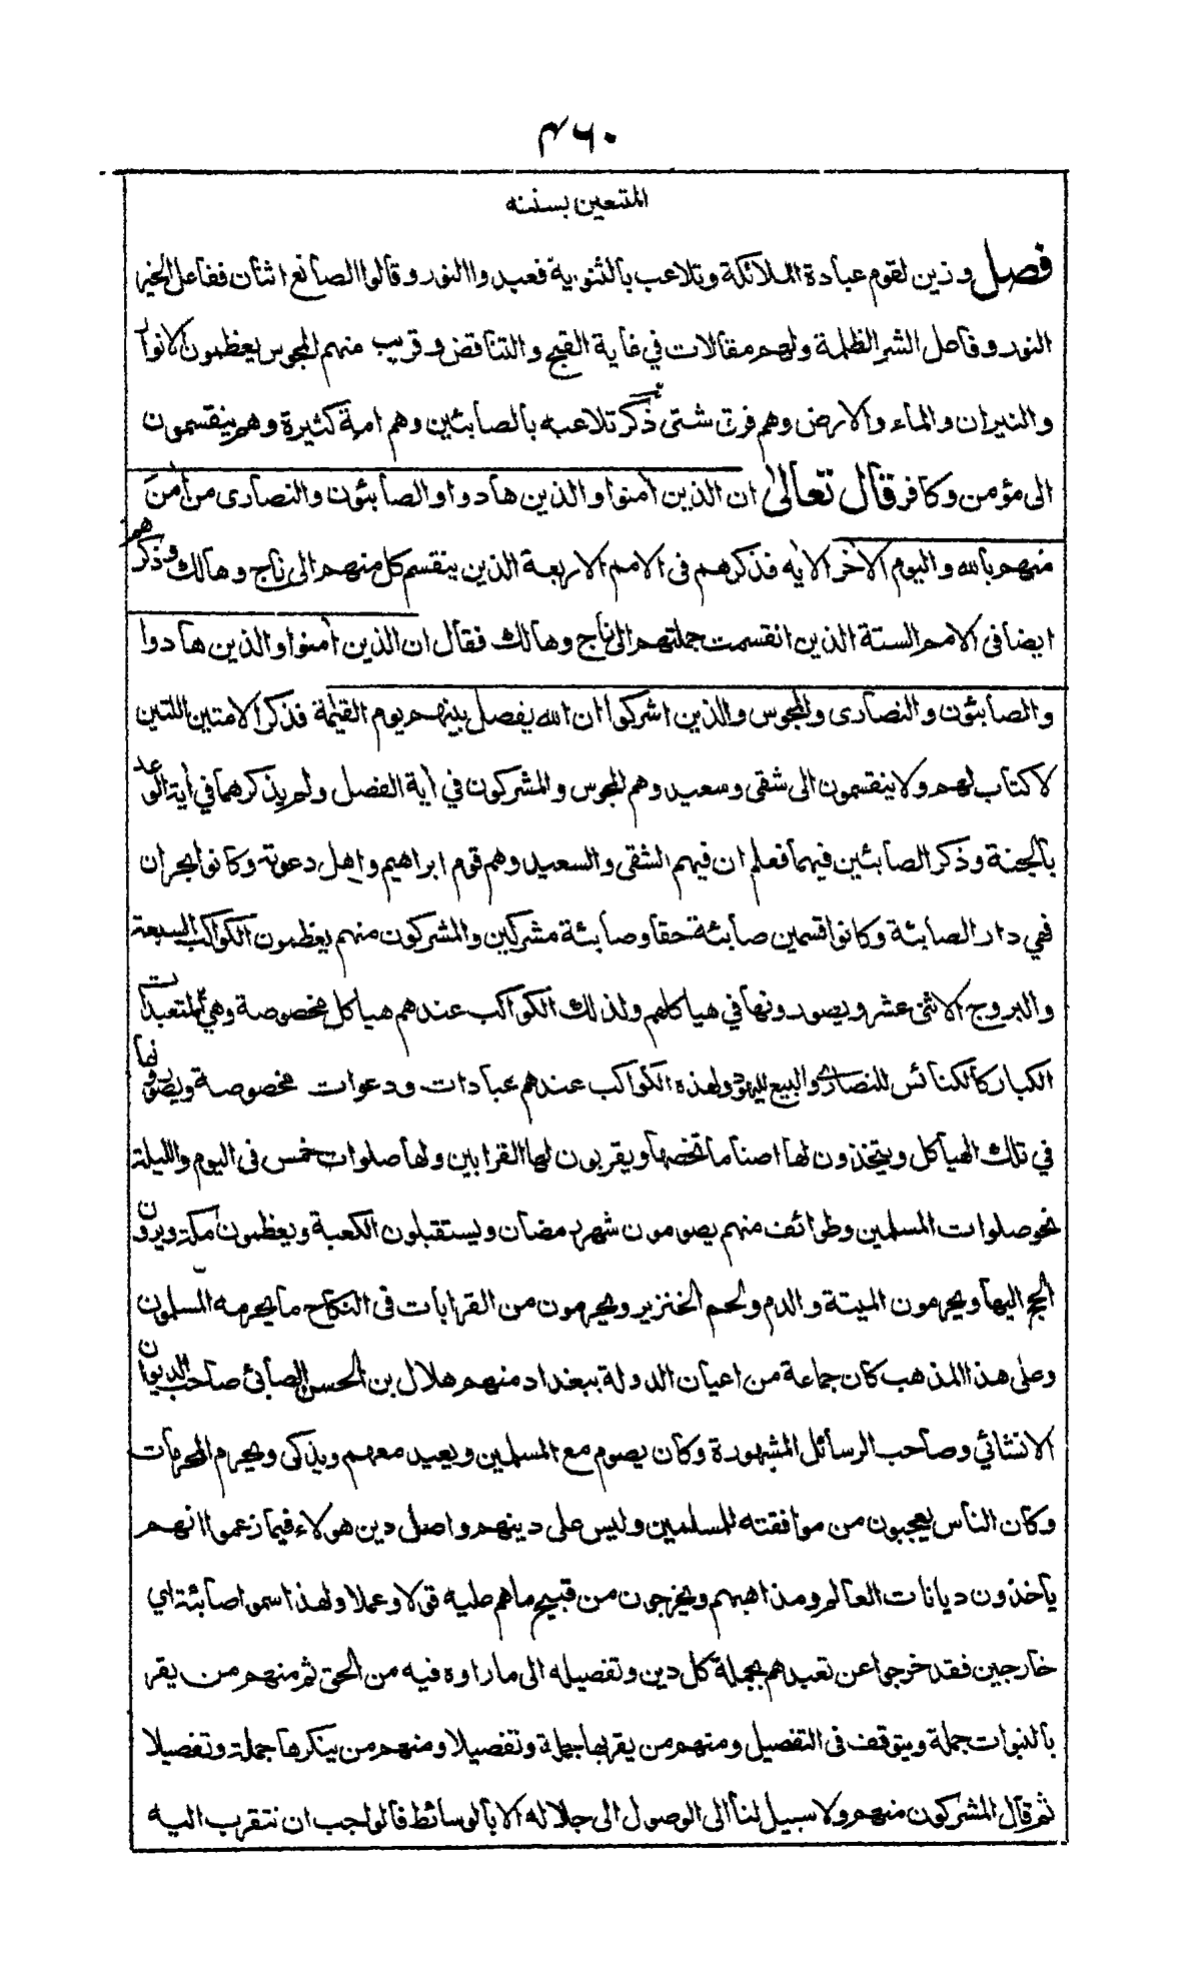 ۴۶۰
المتبعين بسنته
فصل وزين لقوم عبادة الملائكة وتلاعب بالثنوية فعبدوا النور وقالوا الصانع اثنان ففاعل الخير
النور وفاعل الشر الظلمة ولهم مقالات في غاية القبح والتناقض وقريب منهم المجوس يعظمون الانوار
والنيران والماء والارض وهم فرق شتى ثم ذكر تلاعبه بالصابئين وهم امة كثيرة وهم ينقسمون
الى مؤمن وكافر قال تعالى ان الذين آمنوا والذين هادوا والصابئون والنصارى من آمن
منهم بالله واليوم الآخر الآية فذكرهم فى الامم الاربعة الذين ينقسم كل منهم الى ناج وهالك وذكرهم
ايضا فى الامم الستة الذين انقسمت جملتهم الى ناج وهالك فقال ان الذين آمنوا والذين هادوا
والصابئون والنصارى والمجوس والذين اشركوا ان الله يفصل بينهم يوم القيٰمة فذكر الامتين اللتين
لا كتاب لهم ولا ينقسمون الى شقى وسعيد وهم المجوس والمشركون في آية الفصل ولم يذكرهما في آية الوعد
بالجنة وذكر الصابئين فيهما فعلم ان فيهم الشقى والسعيد وهم قوم ابراهيم واهل دعوته وكانوا بحران
فهي دار الصابئة وكانوا قسمين صابئة حقا وصابئة مشركين والمشركون منهم يعظمون الكواكب السبعة
والبروج الاثنى عشر ويصورونها في هياكلهم ولذلك الكواكب عندهم هياكل مخصوصة وهي المتعبدات
الكبار كالكنائس للنصارى والبيع لليهود ولهذه الكواكب عندهم عبادات ودعوات مخصوصة ويصورونها
في تلك الهياكل ويتخذون لها اصناما تخصها ويقربون لها القرابين ولها صلوات خمس فى اليوم والليلة
نحو صلوات المسلمين وطوائف منهم يصومون شهر رمضان ويستقبلون الكعبة ويعظمون مكة ويرون
الحج اليها ويحرمون الميتة والدم ولحم الخنزير ويحرمون من القرابات فى النكاح ما يحرمه المسلمون
وعلى هذا المذهب كان جماعة من اعيان الدولة ببغداد منهم هلال بن الحسن الصابئ صاحب الديوان
الانشائي وصاحب الرسائل المشهورة وكان يصوم مع المسلمين ويعيد معهم ويذكى ويحرم المحرمات
وكان الناس يعجبون من موافقته للمسلمين وليس على دينهم واصل دين هولاء فيما زعموا انهم
ياخذون ديانات العالم ومذاهبهم ويخرجون من قبيح ماهم عليه قولا وعملا ولهذا سموا صابئة اي
خارجين فقد خرجوا عن تعبدهم بجملة كل دين وتفصيله الى ما راوه فيه من الحق ثم منهم من يقر
بالنبوات جملة ويتوقف فى التفصيل ومنهم من يقر بها جملة وتفصيلا ومنهم من ينكرها جملة وتفصيلا
ثم قال المشركون منهم ولا سبيل لنا الى الوصول الى جلاله الا بالوسائط فالواجب ان نتقرب اليه